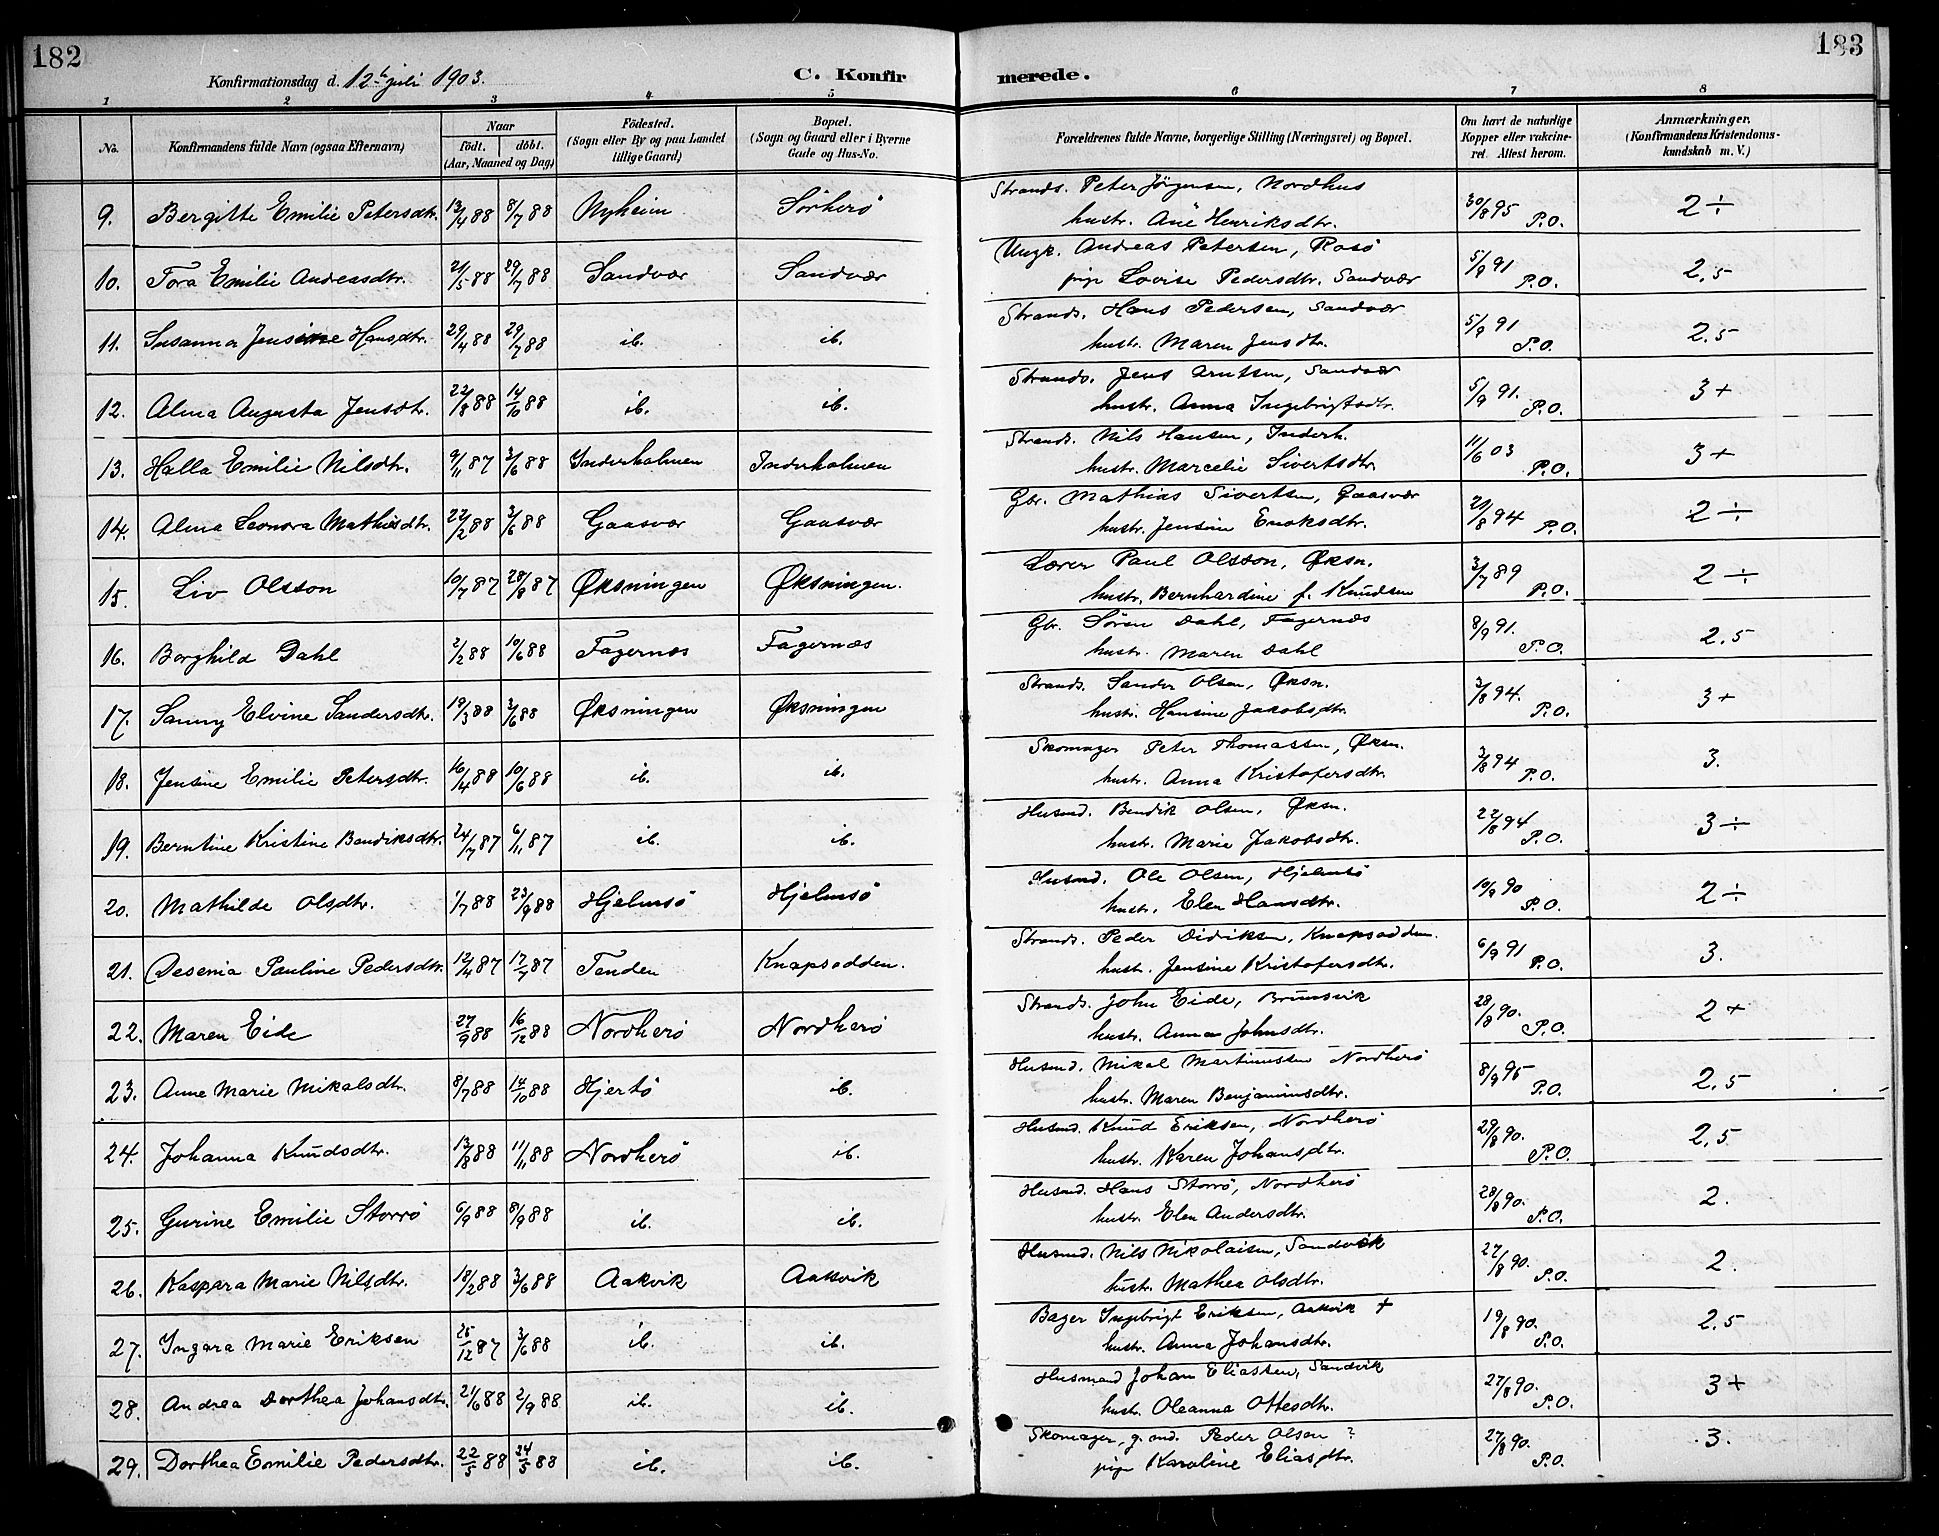 182
183
Konfirmationsdag d. 12te juli 1903.
C. Konfirmerede.
1 2 3 4 5 6 7 8
No.
Konfirmandens fulde Navn (ogsaa Efternavn)
Naar
født. døbt.
(Aar, Maaned og Dag)
Fødested.
(Sogn eller By og paa Landet tillige Gaard)
Bopæl.
(Sogn og Gaard eller i Byerne Gade og Hus-No.
Forældrenes fulde Navne, borgerlige Stilling (Næringsvei) og Bopæl.
Om havt de naturlige Kopper eller vakcineret. Attest herom.
Anmærkninger.
(Konfirmandens Kristendomskundskab m. V.)
9. Bergitte Emilie Petersdtr. 13/4 88 8/7 88 Nyheim Sørherø Strands. Peter Jørgensen, Nordhus 30/8 95 P.O. 2 ÷
hustr. Ane Henriksdtr.
10. Tora Emilie Andreasdtr. 21/5 88 29/7 88 Sandvær Sandvær Ungk. Andreas Petersen, Rosø 5/9 91 P.O. 2,5
pige Lovise Pedersdtr. Sandvær
11. Susanna Jensine Hansdtr. 29/4 88 29/7 88 ib. ib. Strands. Hans Pedersen, Sandvær 5/9 91 P.O. 2,5
hustr. Maren Jensdtr.
12. Alma Augusta Jensdtr. 22/8 88 14/10 88 ib. ib. Strands. Jens Arntsen, Sandvær 5/9 91. P.O. 3 +
hustr. Anna Ingebrigtsdtr.
13. Halla Emilie Nilsdtr. 9/11 87 3/6 88 Inderholmen Inderholmen Strands. Nils Hansen, Inderh. 11/6 03 P.O. 3 +
hustr. Marcelie Sivertsdtr.
14. Alma Leonora Mathisdtr. 22/2 88 3/6 88 Gaasvær Gaasvær Gbr. Mathias Sivertsen, Gaasvær 21/8 94 P.O. 2 ÷
hustr. Jensine Enoksdtr.
15. Liv Olsson 10/7 87 28/8 87 Øksningen Øksningen. Lærer Paul Olsson, Øksn. 3/7 89 P.O. 2 ÷
hustr. Bernhardine f. Knudsen
16. Borghild Dahl 2/2 88 10/6 88 Fagernæs Fagernæs Gbr. Søren Dahl, Fagernæs 8/9 91. P.O. 2,5
hustr. Maren Dahl
17. Sanny Elvine Sandersdtr. 19/3 88 3/6 88 Øksningen Øksningen Strands. Sander Olsen, Øksn. 3/8 94. P.O. 3 +
hustr. Hansine Jakobsdtr.
18. Jensine Emilie Petersdtr. 16/4 88 10/6 88 ib. ib. Skomager Peter Thomassen, Øksn. 3/8 94 P.O. 3.
hustr. Anna Kristofersdtr.
19. Berntine Kristine Bendiksdtr. 24/7 87 6/11 87 ib. ib. Husmd. Bendik Olsen, Øksn. 22/8 94 P.O. 3 ÷
hustr. Marie Jakobsdtr.
20. Mathilde Olsdtr. 1/7 88 23/9 88 Hjelmsø Hjelmsø Husmd. Ole Olsen, Hjelmsø 10/9 90 P.O. 2 ÷
hustr. Elen Hansdtr.
21. Desenia Pauline Pedersdtr. 12/4 87 17/7 87 Tenden Knapsodden. Strands. Peder Didriksen, Knapsodden. 6/9 91 P.O. 3.
hustr. Jensine Kristofersdtr.
22. Maren Eide 27/9 88 16/12 88 Nordherø Nordherø Strands. John Eide, Brunsvik 28/8 90. P.O. 2 +
hustr. Anna Johnsdtr.
23. Anne Marie Mikalsdtr. 8/7 88 14/10 88 Hjertø ib. Husmd. Mikal Martinussen Nordherø 8/9 95 P.O. 2,5
hustr. Maren Benjaminsdtr.
24. Johanna Knudsdtr. 13/8 88 11/11 88 Nordherø ib. Husmd. Knud Eriksen, Nordherø 29/8 90. P.O. 2,5
hustr. Karen Johansdtr.
25. Gurine Emilie Storrø 6/9 88 8/9 88 ib. ib. Husmd. Hans Storrø, Nordherø 28/8 90. P.O. 2.
hustr. Elen Andersdtr.
26. Kaspara Marie Nilsdtr. 18/2 88 3/6 88 Aakvik Aakvik Husmd. Nils Nikolaisen, Sandvik 27/8 90. P.O. 2.
hustr. Mathea Olsdtr.
27. Ingara Marie Eriksen 25/12 87 3/6 88 ib. ib. Bager Ingebrigt Eriksen, Aakvik + 19/8 90. P.O. 2,5
hustr. Anna Johansdtr.
28. Andrea Dorthea Johansdtr. 21/6 88 2/9 88 ib. ib. Husmand Johan Eliassen, Sandvik 27/8 90. P.O. 3 +
hustr. Oleanna Ottesdtr.
29. Dorthea Emilie Pedersdtr. 22/5 88 24/5 88 ib. ib. Skomager, g. md. Peder Olsen ? 27/8 90. P.O. 3.
pige Karoline Eliasdtr.